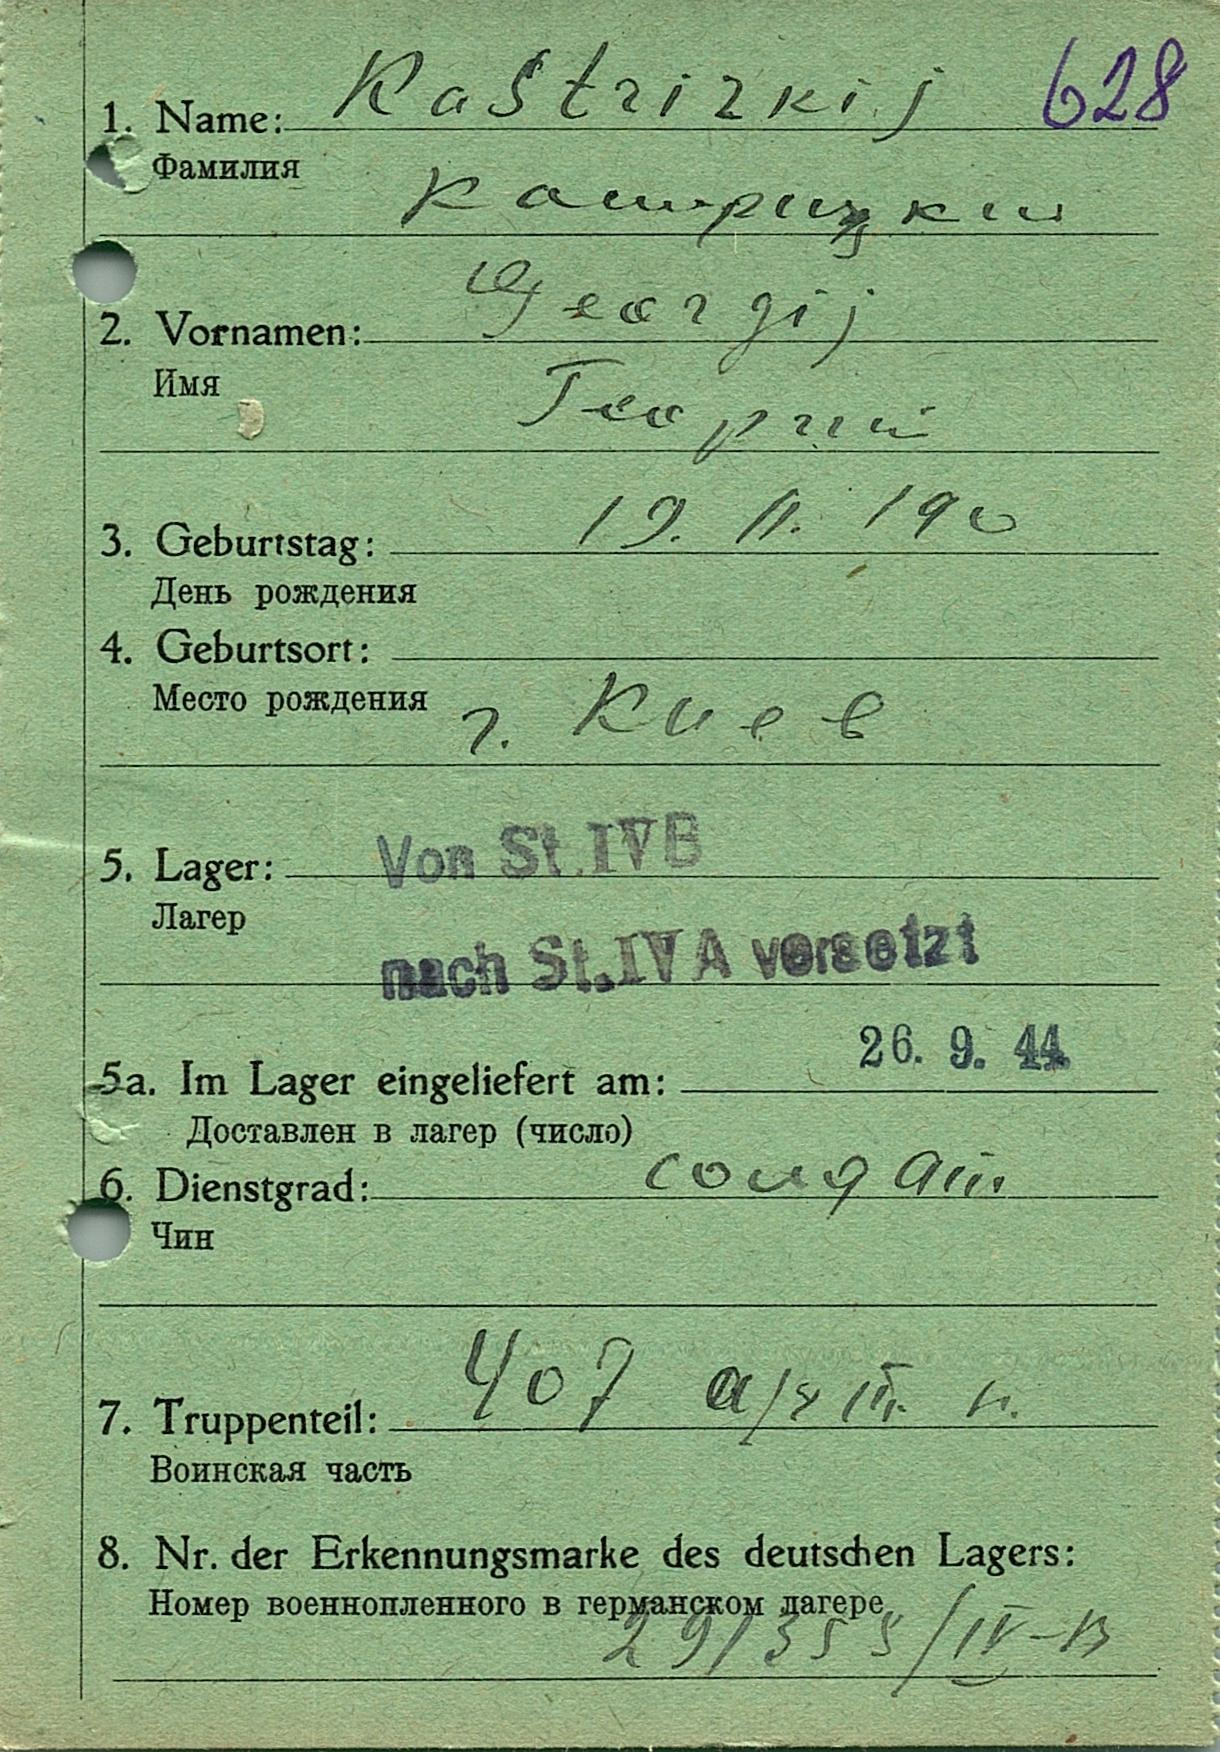 1. Name: Kastrizkij 628
Фамилия
Кастрицкий
2. Vornamen: Georgij
Имя
Георгий
3. Geburtstag: 19. II. 190
День рождения
4. Geburtsort:
Место рождения г. Киев
5. Lager: Von St. IV B
Лагер
nach St. IV A versetzt
26. 9. 44
5a. Im Lager eingeliefert am:
Доставлен в лагер (число)
6. Dienstgrad: солдат
Чин
7. Truppenteil: 407 арт. п.
Воинская часть
8. Nr. der Erkennungsmarke des deutschen Lagers:
Номер военнопленного в германском лагере
291355/IV-B